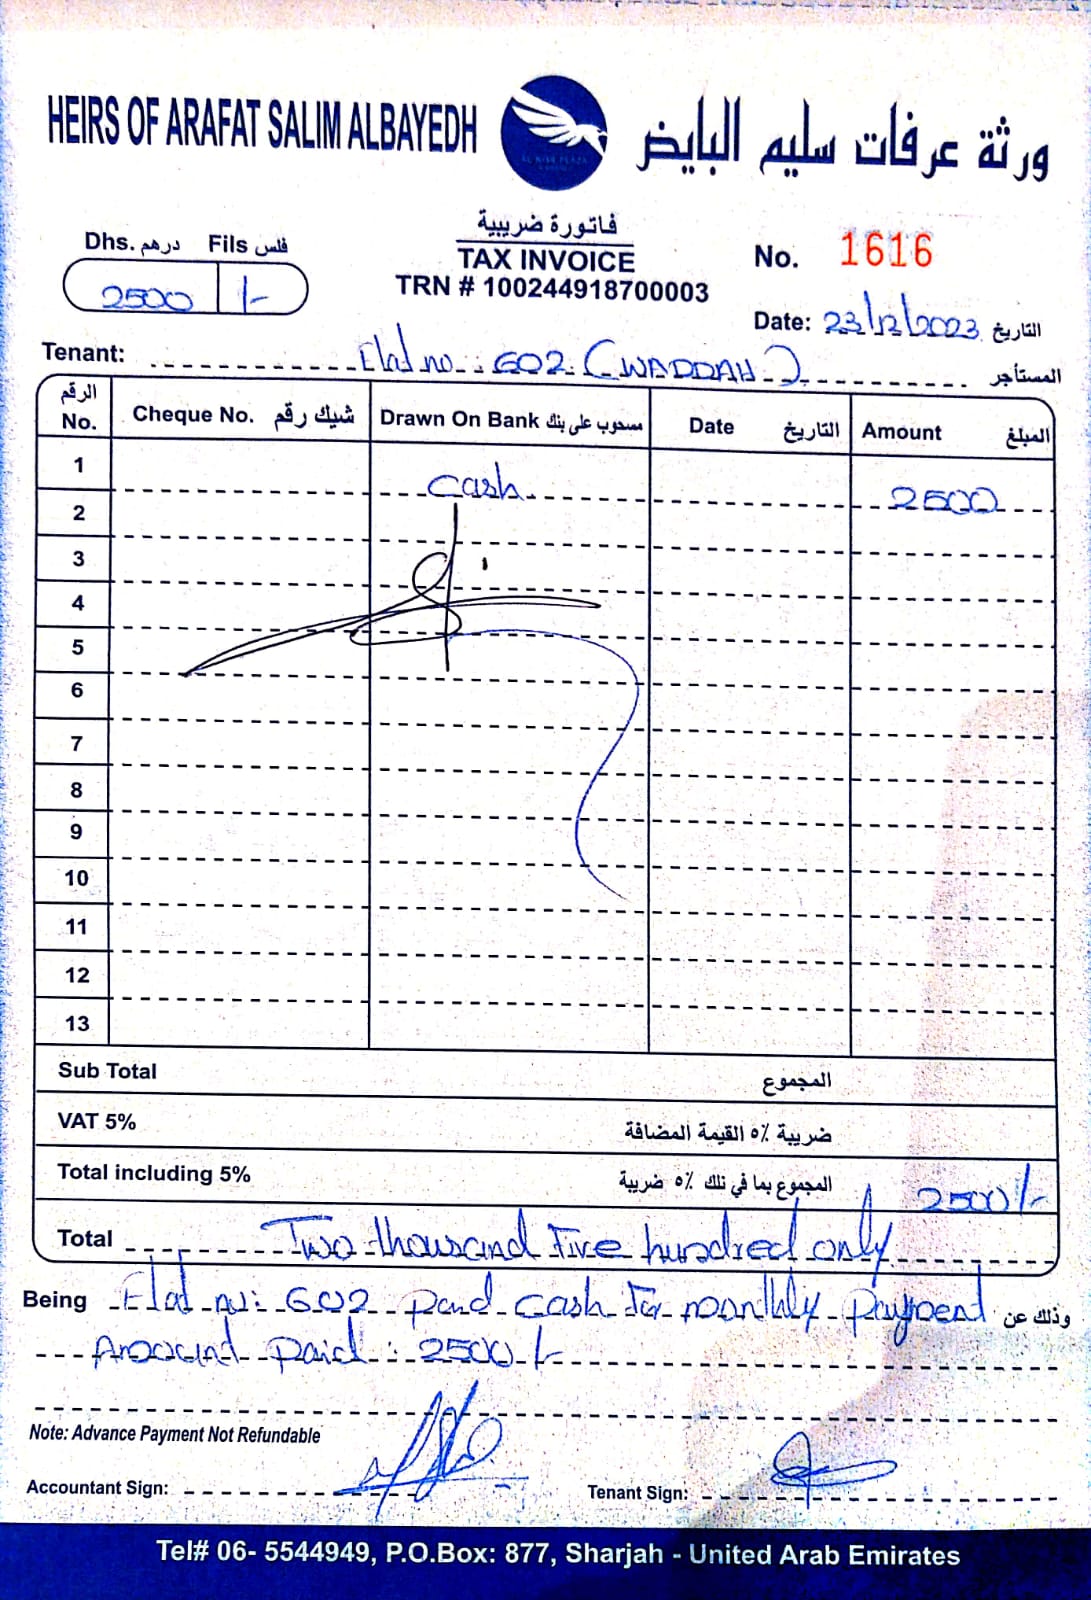 HEIRS OF ARAFAT SALIM ALBAYEDH
ورثة عرفات سليم البايض
فاتورة ضريبية
TAX INVOICE
TRN # 100244918700003
Dhs. درهم Fils فلس
2500 /-
No. 1616
Date: 23/12/2023 التاريخ
Tenant: Flat no: 602 (WADDAH) المستأجر
الرقم No. Cheque No. شيك رقم Drawn On Bank مسحوب على بنك Date التاريخ Amount المبلغ
1 Cash 2500
2
3
4
5
6
7
8
9
10
11
12
13
Sub Total المجموع
VAT 5% ضريبة ٥٪ القيمة المضافة
Total including 5% المجموع بما في ذلك ٥٪ ضريبة 2500/-
Total Two thousand Five hundred only
Being Flat no: 602 paid cash for monthly payment وذلك عن
Amount paid: 2500/-
Note: Advance Payment Not Refundable
Accountant Sign:
Tenant Sign:
Tel# 06- 5544949, P.O.Box: 877, Sharjah - United Arab Emirates